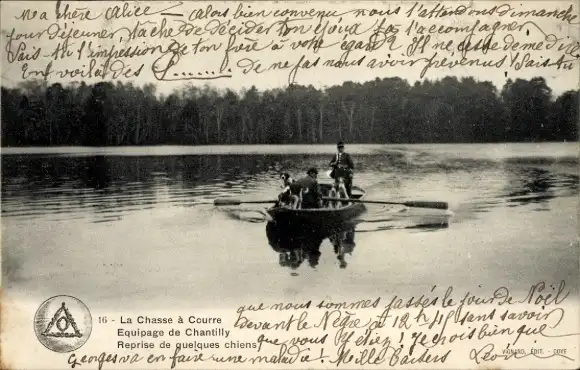 Ma chère Alice — alors bien convenu nous t'attendons dimanche
pour déjeuner, tâche de décider ton époux à t'accompagner,
Sais-tu l'impression de ton foie à votre égard? Il ne cesse de me dire
En voilà des de ne pas nous avoir prévenus! Sais-tu
que nous sommes passés le jour de Noël
devant le Nègre à 12h 1/4 sans savoir
que vous y étiez! Je crois bien que
Georges va en faire une maladie! Mille baisers
16 - La Chasse à Courre
Equipage de Chantilly
Reprise de quelques chiens
VIGNARD, ÉDIT. - COYE